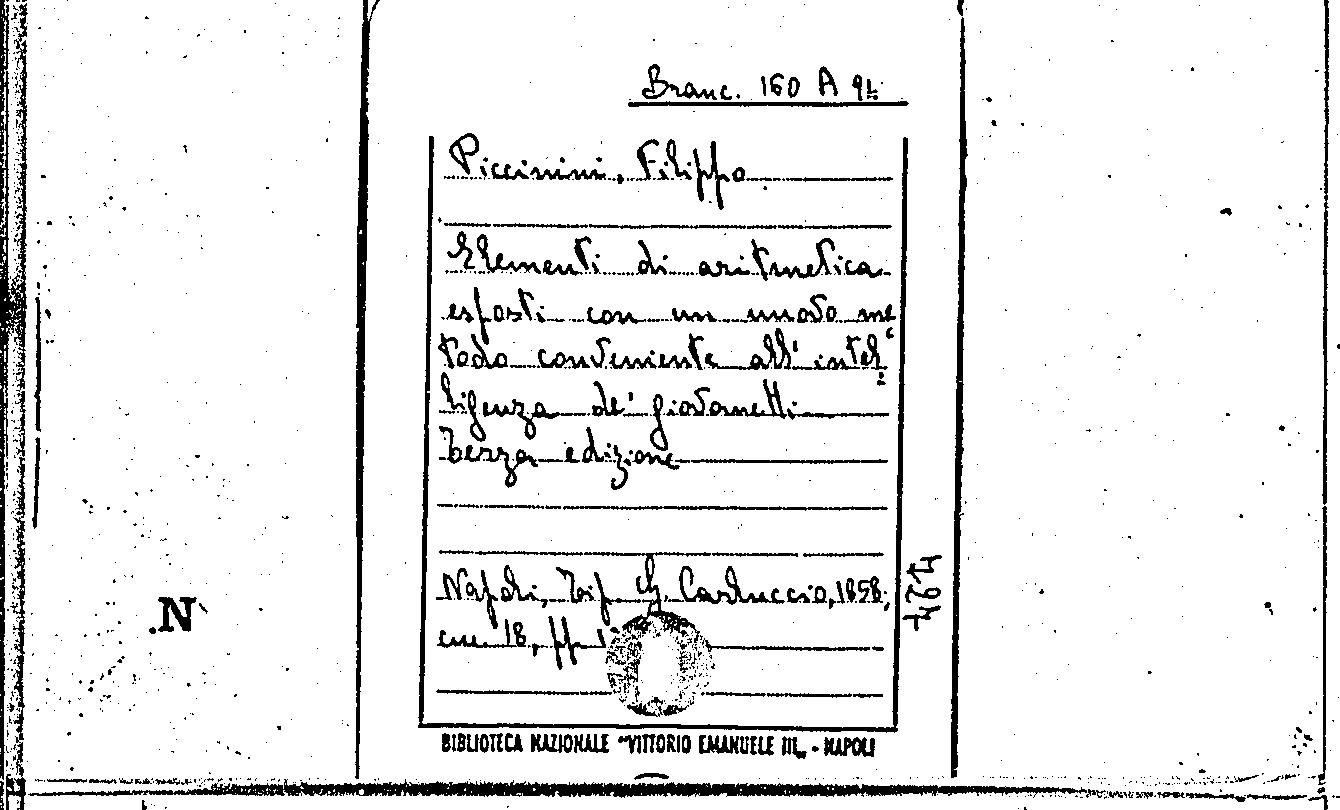 Branc. 160 A 94
Piccinini, Filippo
Elementi di aritmetica
esposti con un nuovo me
todo conveniente all'intel
ligenza de' giovanetti
Terza edizione
Napoli, Tip. G. Carluccio, 1858;
cm. 18, pp.
BIBLIOTECA NAZIONALE "VITTORIO EMANUELE III„ - NAPOLI
N